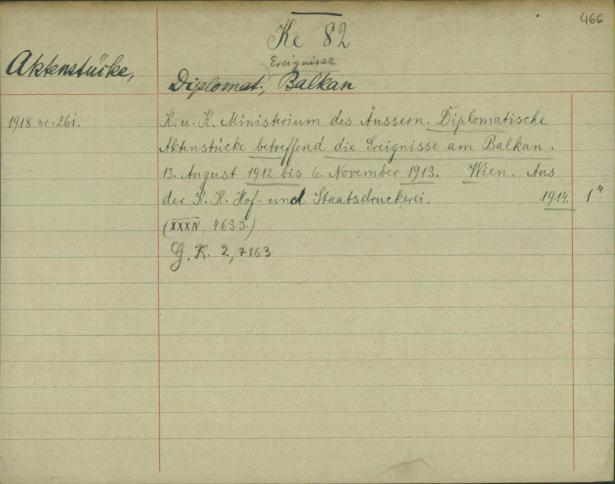 466
Ke 82
Ereignisse
Aktenstücke,
Diplomat., Balkan
1918 nr. 261.
K. u. K. Ministerium des Äussern. Diplomatische
Aktenstücke betreffend die Ereignisse am Balkan.
13. August 1912 bis 6. November 1913. Wien. Aus
der K. K. Hof- und Staatsdruckerei. 1914. 1"
(XXXIV, 463 S.)
G. K. 2, 7163